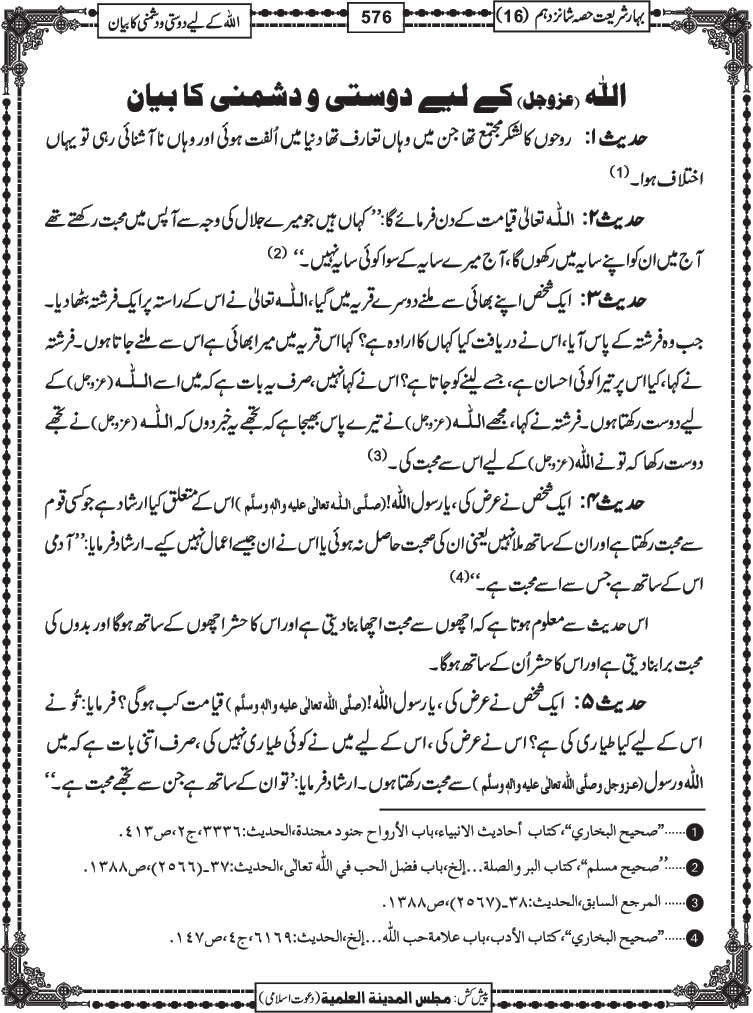 بہارِشریعت حصہ شانزدہم (16)
576
اللہ کے لیے دوستی و دشمنی کا بیان
اللہ (عزوجل) کے لیے دوستی و دشمنی کا بیان
حدیث ۱: روحوں کا لشکر مجتمع تھا جن میں وہاں تعارف تھا دنیا میں اُلفت ہوئی اور وہاں ناآشنائی رہی تو یہاں
اختلاف ہوا۔ (1)
حدیث ۲: اللہ تعالیٰ قیامت کے دن فرمائے گا: ’’کہاں ہیں جو میرے جلال کی وجہ سے آپس میں محبت رکھتے تھے
آج میں ان کو اپنے سایہ میں رکھوں گا، آج میرے سایہ کے سوا کوئی سایہ نہیں۔‘‘ (2)
حدیث ۳: ایک شخص اپنے بھائی سے ملنے دوسرے قریہ میں گیا، اللہ تعالیٰ نے اس کے راستہ پر ایک فرشتہ بٹھا دیا۔
جب وہ فرشتہ کے پاس آیا، اس نے دریافت کیا کہاں کا ارادہ ہے؟ کہا اس قریہ میں میرا بھائی ہے اس سے ملنے جاتا ہوں۔ فرشتہ
نے کہا، کیا اس پر تیرا کوئی احسان ہے، جسے لینے کو جاتا ہے؟ اس نے کہا نہیں، صرف یہ بات ہے کہ میں اسے اللہ (عزوجل) کے
لیے دوست رکھتا ہوں۔ فرشتہ نے کہا، مجھے اللہ (عزوجل) نے تیرے پاس بھیجا ہے کہ تجھے یہ خبر دوں کہ اللہ (عزوجل) نے تجھے
دوست رکھا کہ تو نے اللہ (عزوجل) کے لیے اس سے محبت کی۔ (3)
حدیث ۴: ایک شخص نے عرض کی، یارسول اللہ! (صلَّی اللہ تعالٰی علیہ واٰلہٖ وسلَّم) اس کے متعلق کیا ارشاد ہے جو کسی قوم
سے محبت رکھتا ہے اور ان کے ساتھ ملا نہیں یعنی ان کی صحبت حاصل نہ ہوئی یا اس نے ان جیسے اعمال نہیں کیے۔ ارشاد فرمایا: ’’آدمی
اس کے ساتھ ہے جس سے اسے محبت ہے۔‘‘ (4)
اس حدیث سے معلوم ہوتا ہے کہ اچھوں سے محبت اچھا بنا دیتی ہے اور اس کا حشر اچھوں کے ساتھ ہوگا اور بدوں کی
محبت برا بنا دیتی ہے اور اس کا حشر اُن کے ساتھ ہوگا۔
حدیث ۵: ایک شخص نے عرض کی، یارسول اللہ! (صلَّی اللہ تعالٰی علیہ واٰلہٖ وسلَّم) قیامت کب ہوگی؟ فرمایا: تُو نے
اس کے لیے کیا طیاری کی ہے؟ اس نے عرض کی، اس کے لیے میں نے کوئی طیاری نہیں کی، صرف اتنی بات ہے کہ میں
اللہ و رسول (عزوجل وصلَّی اللہ تعالٰی علیہ واٰلہٖ وسلَّم) سے محبت رکھتا ہوں۔ ارشاد فرمایا: ’’تو ان کے ساتھ ہے جن سے تجھے محبت ہے۔‘‘
1......’’صحیح البخاري‘‘، کتاب أحادیث الانبیاء، باب الأرواح جنود مجندة، الحدیث: ۳۳۳۶، ج۲، ص۴۱۳.
2......’’صحیح مسلم‘‘، کتاب البر والصلة...إلخ، باب فضل الحب في اللہ تعالٰی، الحدیث: ۳۷ـ(۲۵۶۶)، ص۱۳۸۸.
3......المرجع السابق، الحدیث: ۳۸ـ(۲۵۶۷)، ص۱۳۸۸.
4......’’صحیح البخاري‘‘، کتاب الأدب، باب علامة حب اللہ...إلخ، الحدیث: ۶۱۶۹، ج۴، ص۱۴۷.
پیش کش: مجلس المدینة العلمیة (دعوت اسلامی)